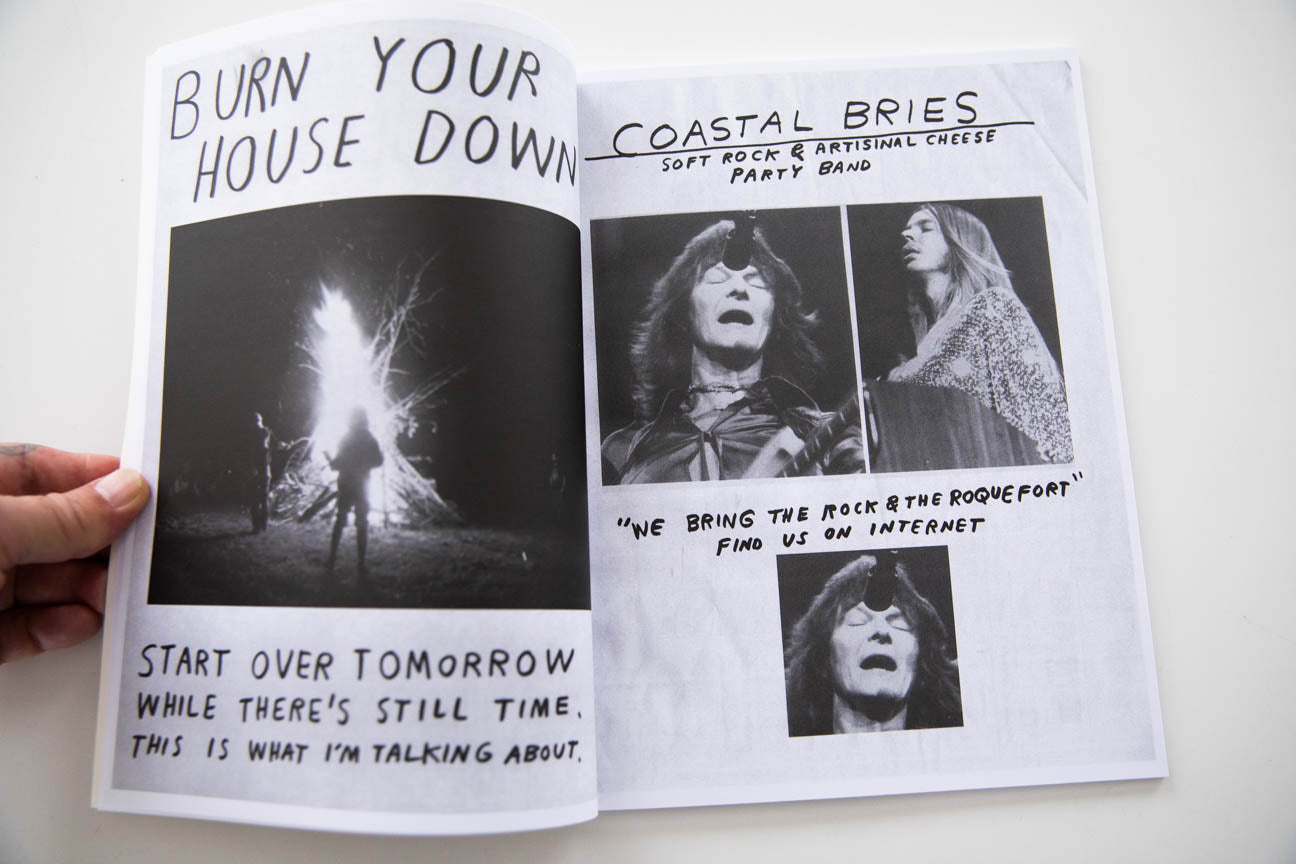 BURN YOUR
HOUSE DOWN
START OVER TOMORROW
WHILE THERE'S STILL TIME.
THIS IS WHAT I'M TALKING ABOUT.
COASTAL BRIES
SOFT ROCK & ARTISINAL CHEESE
PARTY BAND
"WE BRING THE ROCK & THE ROQUEFORT"
FIND US ON INTERNET